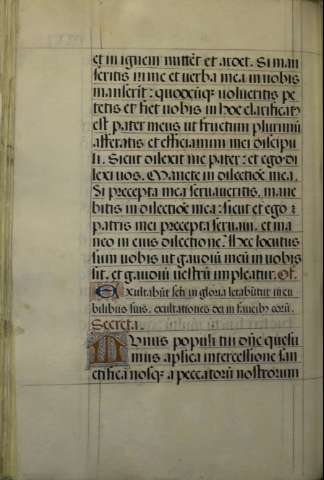 et in ignem mittēt et ardet. Si man
seritis in me et verba mea in vobis
manserīt: quodcūqꝫ volueritis pe
tetis et fiet vobis in hoc clarificatꝰ
est pater meus ut fructum plurimū
afferatis et efficiamini mei discipu
li. Sicut dilexit me pater: et ego di
lexi vos. Manete in dilectiōe mea.
Si precepta mea servaveritis, mane
bitis in dilectiōe mea: sicut et ego
patris mei precepta servavi, et ma
neo in eius dilectione. Hec locutus
sum vobis ut gaudiū meū in vobis
sit, et gaudiū vestrū impleatur. Of.
Exultabūt scti in gloria letabūtur in cu
bilibus suis, exultationes dei in faucibꝰ eorū.
Secreta.
Munus populi tui dn̄e quesu
mus aplica intercessione san
ctifica nosqꝫ a peccatorū nostrorum